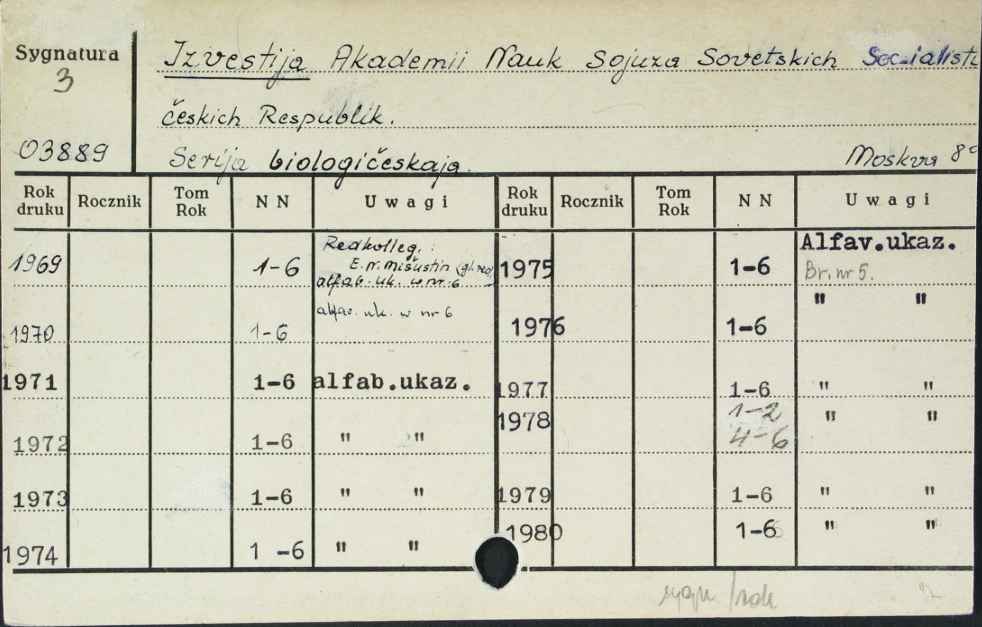 Sygnatura
3
03889
Izvestija Akademii Nauk Sojuza Sovetskich Socialisti
českich Respublik.
Serija biologičeskaja. Moskva 8°
Rok druku Rocznik Tom Rok NN Uwagi Rok druku Rocznik Tom Rok NN Uwagi
1969 1-6 Redkolleg.:
E.N. Mišustin (gl. red)
alfab. uk. w nr. 6
1970 1-6 alfav. uk. w nr 6
1971 1-6 alfab.ukaz.
1972 1-6 " "
1973 1-6 " "
1974 1 -6 " "
1975 1-6 Alfav.ukaz.
Br. nr 5.
1976 1-6 " "
1977 1-6 " "
1978 1-2 " "
4-6
1979 1-6 " "
1980 1-6 " "